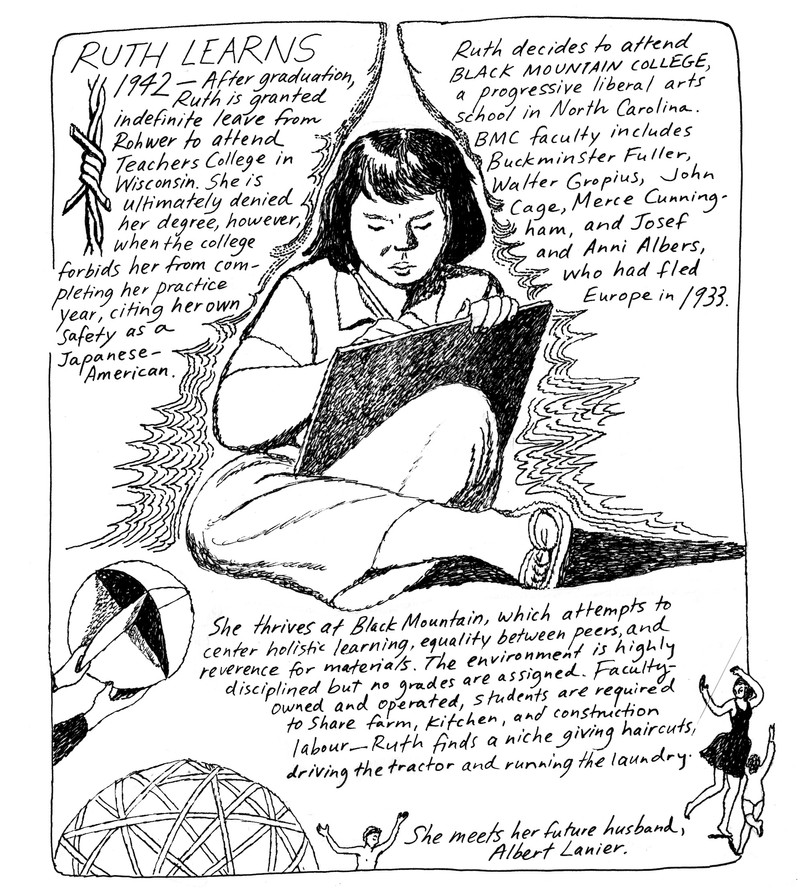 RUTH LEARNS
1942 — After graduation,
Ruth is granted
indefinite leave from
Rohwer to attend
Teachers College in
Wisconsin. She is
ultimately denied
her degree, however,
when the college
forbids her from com-
pleting her practice
year, citing her own
safety as a
Japanese-
American.
Ruth decides to attend
BLACK MOUNTAIN COLLEGE,
a progressive liberal arts
school in North Carolina.
BMC faculty includes
Buckminster Fuller,
Walter Gropius, John
Cage, Merce Cunning-
ham, and Josef
and Anni Albers,
who had fled
Europe in 1933.
She thrives at Black Mountain, which attempts to
center holistic learning, equality between peers, and
reverence for materials. The environment is highly
disciplined but no grades are assigned. Faculty-
owned and operated, students are required
to share farm, kitchen, and construction
labour—Ruth finds a niche giving haircuts,
driving the tractor and running the laundry.
She meets her future husband,
Albert Lanier.